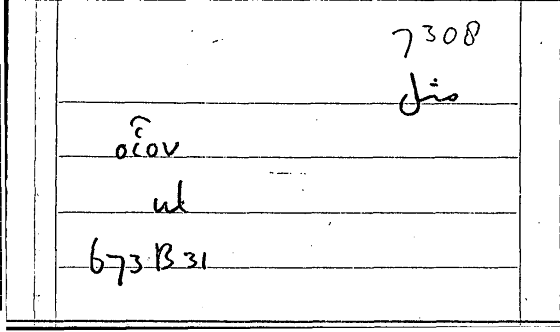 7308
مثل
οἷον
ut
673 B 31